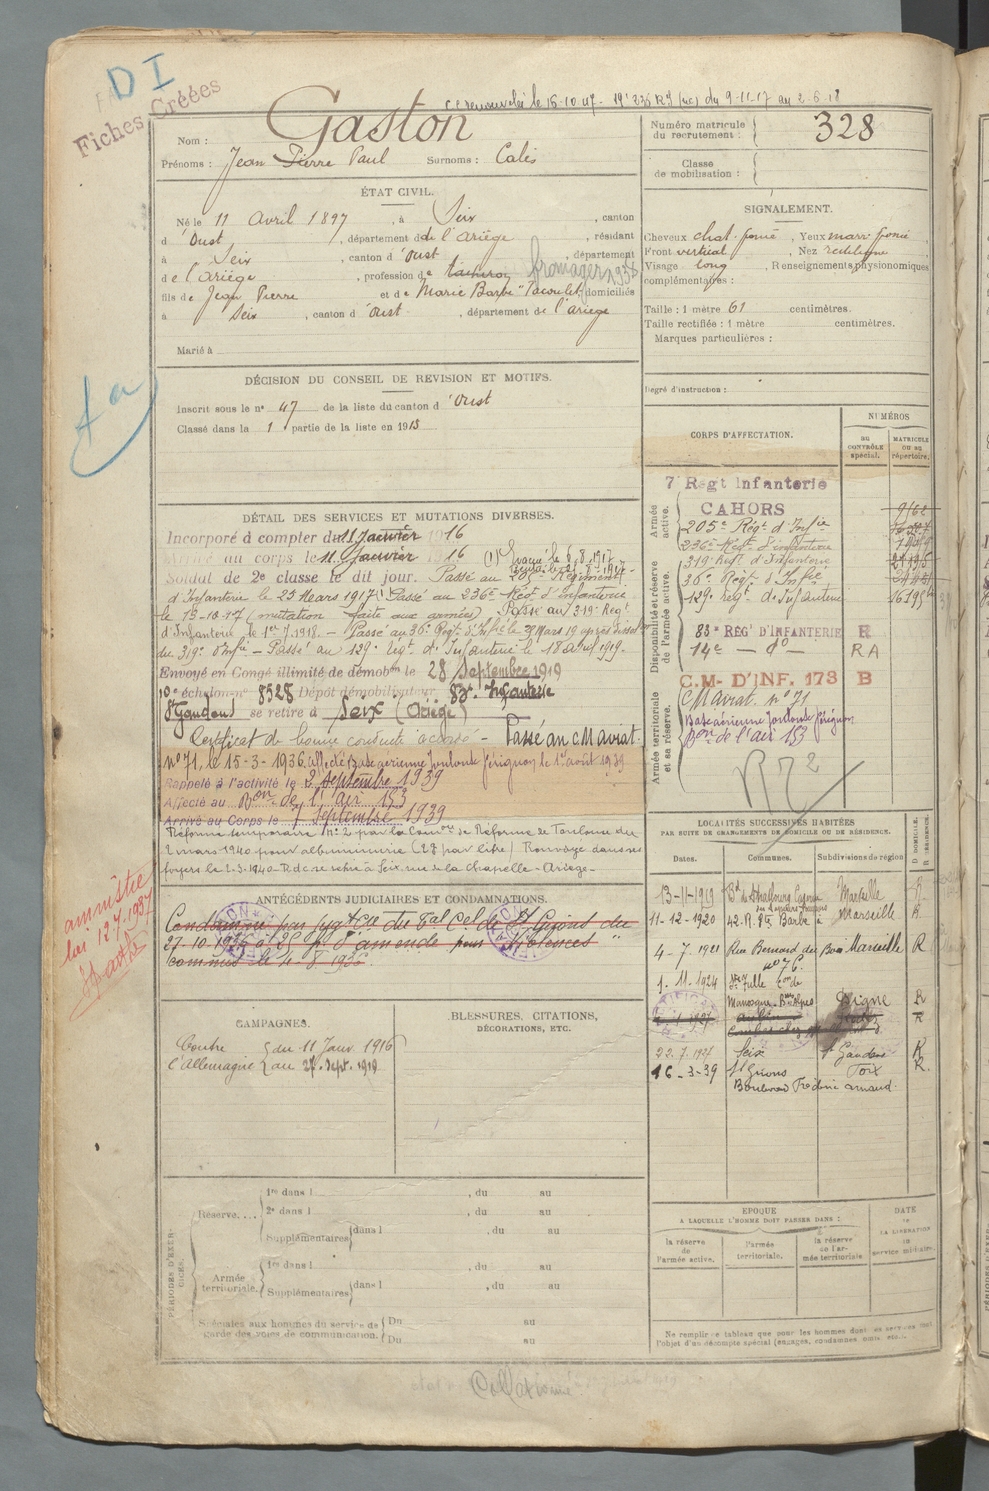 D I
Fiches Créées
le 16.10.17 - 19e 236 RI du 9-11-17 au 2-6-18
Nom : Gaston
Prénoms : Jean Pierre Paul Surnoms : Calis
Numéro matricule du recrutement : 328
Classe de mobilisation :
ÉTAT CIVIL.
Né le 11 Avril 1897, à Seix, canton
d'Oust, département de l'Ariège, résidant
à Seix, canton d'Oust, département
de l'Ariège, profession de fromager 1938
fils de Jean Pierre et de Marie Barbe domiciliés
à Seix, canton d'Oust, département de l'Ariège
Marié à
SIGNALEMENT.
Cheveux chat. foncé, Yeux marr. foncé,
Front vertical, Nez rectiligne,
Visage long, Renseignements physionomiques
complémentaires :
Taille : 1 mètre 61 centimètres.
Taille rectifiée : 1 mètre centimètres.
Marques particulières :
Degré d'instruction :
DÉCISION DU CONSEIL DE REVISION ET MOTIFS.
Inscrit sous le n° 47 de la liste du canton d'Oust
Classé dans la 1 partie de la liste en 191
DÉTAIL DES SERVICES ET MUTATIONS DIVERSES.
Incorporé à compter du 11 Janvier 1916
Arrivé au corps le 11 Janvier 1916 (1) Evacué le 6.8.1917
Soldat de 2e classe le dit jour. Passé au 205e Régiment
d'Infanterie le 25 Mars 1917 (1) Passé au 236e Régt d'Infanterie
le 15-10-17 (mutation faite aux armées) Passé au 319e Régt
d'Infanterie le 1er.7.1918. - Passé au 36e Régt d'Infie le 29 Mars 19 après dissol
du 319e d'Infie - Passé au 129e Régt d'Infanterie le 18 avril 1919.
Envoyé en Congé illimité de démobon le 28 Septembre 1919
10e échelon n° 8328 Dépôt démobilisateur 83e Infanterie
St Gaudens se retire à Seix (Ariège)
Certificat de bonne conduite accordé - Passé au C Mariat
n° 71, le 15-3-1936. affecté Base aérienne Toulouse Férignon le 1er août 1939
Rappelé à l'activité le 2 Septembre 1939
Affecté au Bon de l'air 153
Arrivé au Corps le 7 Septembre 1939
Réforme temporaire n° 2 par la Comon de Réforme de Toulouse du
2 mars 1940 pour albuminurie (2g par litre) Renvoyé dans ses
foyers le 2.3.1940 - D. dc se retire à Seix, rue de la Chapelle - Ariège -
amnistie
loi 12.7.1937
ANTÉCÉDENTS JUDICIAIRES ET CONDAMNATIONS.
Condamné par jugt du Bal Cel de St Girons du
27.10.1936 à 25 f. d'amende pour "Violences"
commis le 4-8-1936.
CAMPAGNES.
Contre l'Allemagne du 11 Janv. 1916 au 27. Sept. 1919
BLESSURES, CITATIONS,
DÉCORATIONS, ETC.
CORPS D'AFFECTATION.
NUMÉROS
AU CONTRÔLE spécial.
MATRICULE OU AU répertoire.
Armée active.
7 Regt Infanterie
CAHORS
205e Régt d'Infie
236e Régt d'Infanterie
319e Régt d'Infanterie
Disponibilité et réserve
36e Régt d'Infie
129e Régt d'Infanterie
83e REG' D'INFANTERIE R
14e - do - R A
Armée territoriale et sa réserve.
C.M- D'INF. 173 B
C Mariat. n° 71
Base aérienne Toulouse Férignon
Bon de l'air 153
LOCALITÉS SUCCESSIVES HABITÉES
PAR SUITE DE CHANGEMENTS DE DOMICILE OU DE RÉSIDENCE.
Dates. Communes. Subdivisions de région D. DOMICILE. R. RÉSIDENCE.
13-11-1919 Bd de Strasbourg Marseille R
11-12-1920 42. R. Ste Barbe à Marseille R
4-7-1921 Rue Bernard du Bois Marseille R
n° 76.
1.11.1924
Manosque. Bses Alpes Digne R
22.7.1937 Seix St Gaudens R
16-3-39 St Girons Foix R.
Boulevard Frédéric Arnaud.
PÉRIODES D'EXERCICES.
Réserve.... 1re dans l , du au
2e dans l , du au
Supplémentaires dans l , du au
Armée territoriale. 1re dans l , du au
Supplémentaires dans l , du au
Spéciales aux hommes du service de garde des voies de communication. Du au
Du au
EPOQUE
A LAQUELLE L'HOMME DOIT PASSER DANS :
la réserve de l'armée active.
l'armée territoriale.
la réserve de l'armée territoriale
DATE de LA LIBÉRATION du service militaire.
Ne remplir ce tableau que pour les hommes dont les services font
l'objet d'un décompte spécial (engagés, condamnés, omis, etc.).
Collationné